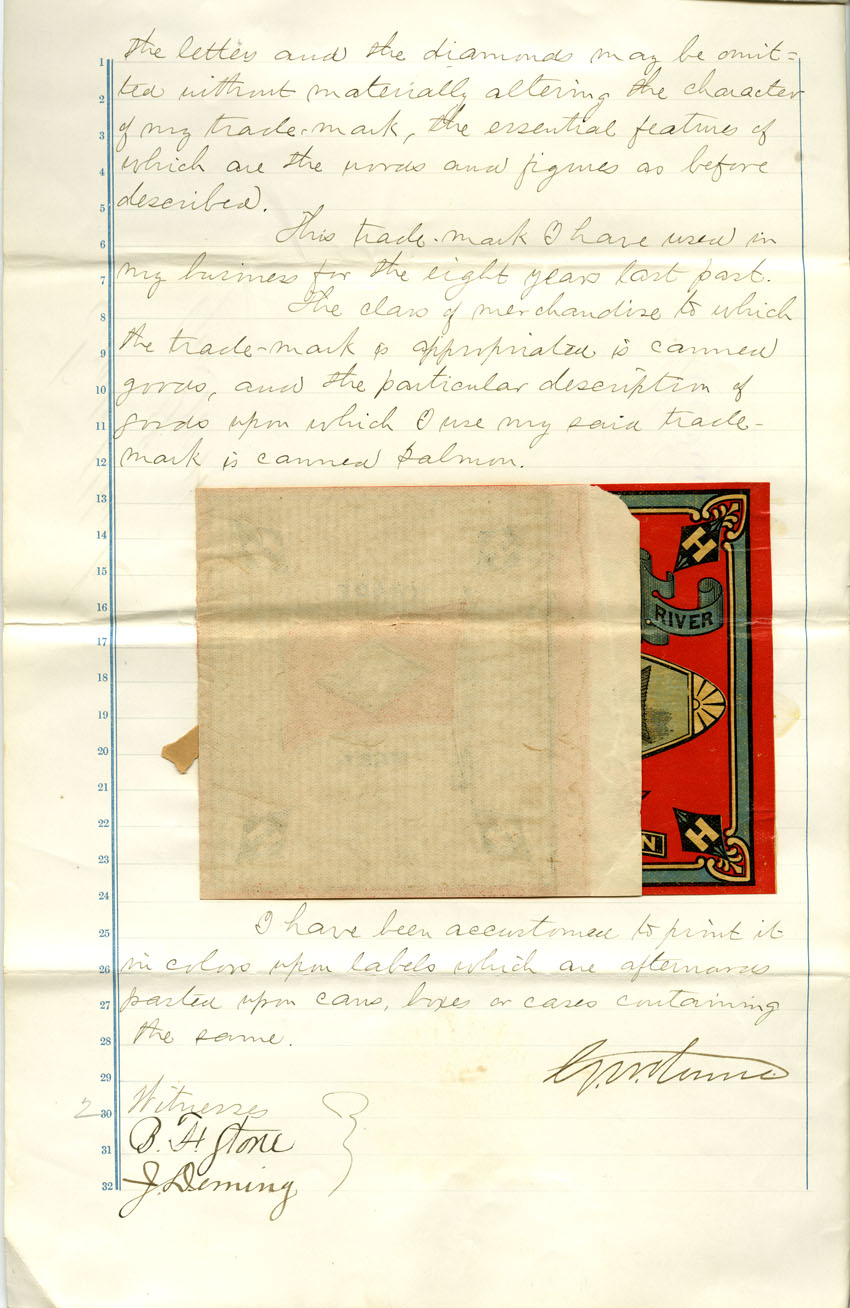 the letters and the diamonds may be omit=
ted without materially altering the character
of my trade-mark, the essential features of
which are the words and figures as before
described.
This trade-mark I have used in
my business for the eight years last past.
The class of merchandise to which
the trade-mark is appropriated is canned
goods, and the particular description of
goods upon which I use my said trade-
mark is canned salmon.
H
RIVER
H
N
I have been accustomed to print it
in colors upon labels which are afterwards
pasted upon cans, boxes or cases containing
the same.
Witnesses
B. F. Stone
J. Deming
1
2
3
4
5
6
7
8
9
10
11
12
13
14
15
16
17
18
19
20
21
22
23
24
25
26
27
28
29
30
31
32
2